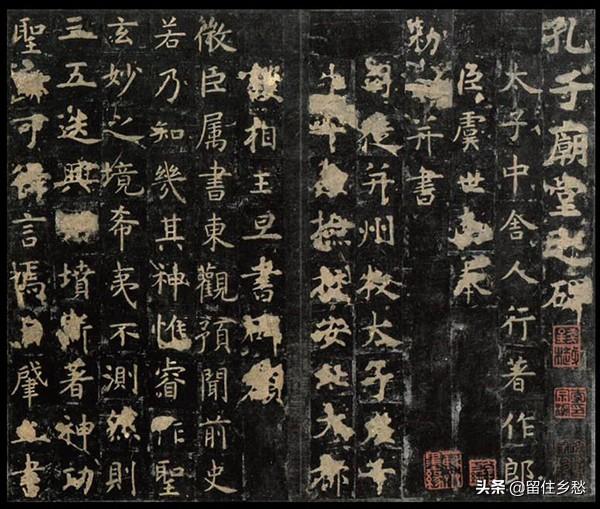 孔子廟堂之碑
太子中舍人行著作郎
臣虞世南奉
勑并書
司徒并州牧太子左千
牛率兼撿挍安北大都
護相王旦書碑額
微臣属書東觀預聞前史
若乃知幾其神惟睿作聖
玄妙之境希夷不測然則
三五迭興墳斯著神功
聖跡可得言焉肇立書
头条 @留住乡愁